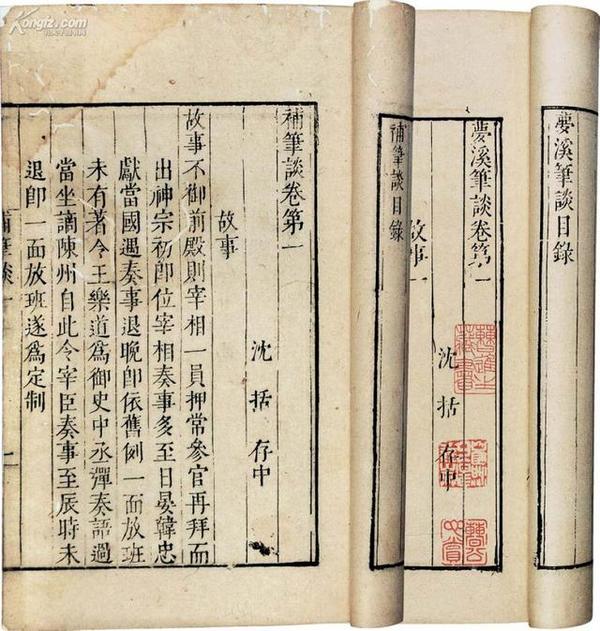 夢溪筆談目錄
夢溪筆談卷第一
故事一
沈括存中
補筆談目錄
補筆談卷第一
故事
沈括存中
故事不御前殿則宰相一員押常參官再拜而
出神宗初卽位宰相奏事多至日晏韓忠
獻當國遇奏事退晚卽依舊例一面放班
未有著令王樂道為御史中丞彈奏語過
當坐謫陳州自此令宰臣奏事至辰時未
退卽一面放班遂為定制
補筆談一
一
Kongfz.com